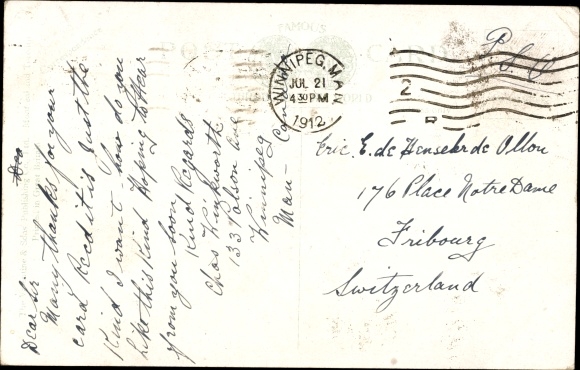 Dear Sir
Many thanks for your
card Recd it is Just the
Kind I want - how do you
like this Kind Hoping to hear
from you soon
Kind Regards
Chas
133 Polson Ave
Winnipeg
Man- Can
FAMOUS
POST CARD
WINNIPEG, MAN
JUL 21
4 30 PM
1912
2
Eric. E. de
176 Place Notre Dame
Fribourg
Switzerland